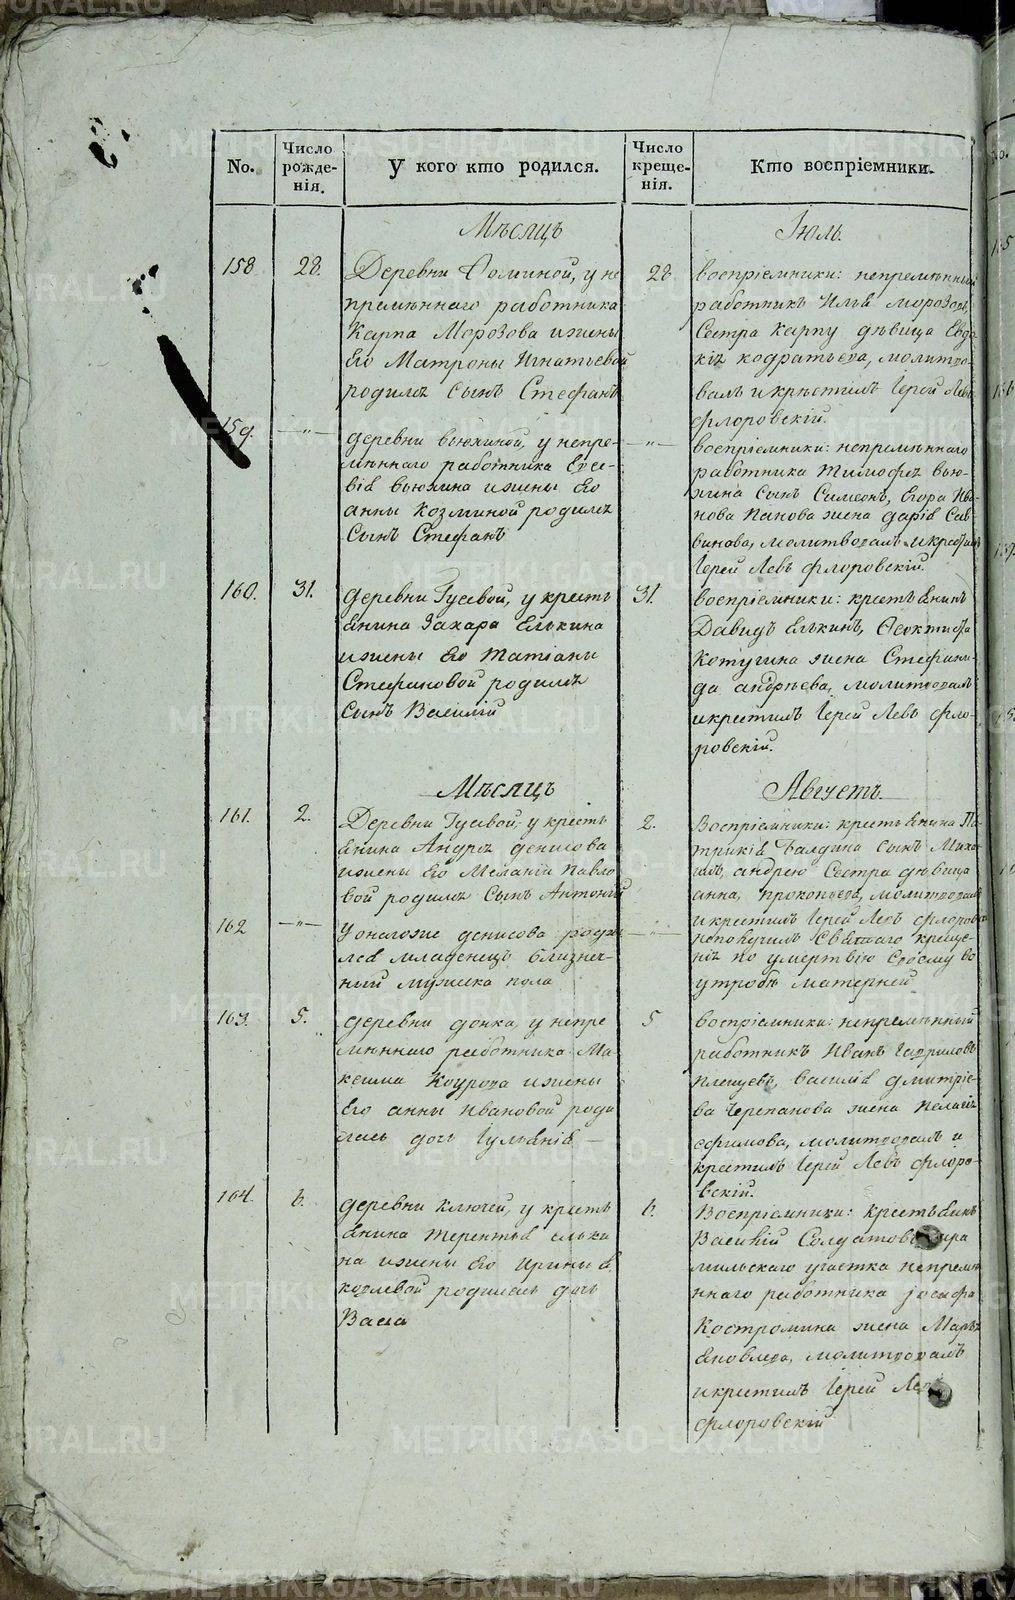 No.
Число рожде- нія.
У кого кто родился.
Число креще- нія.
Кто воспріемники.
Мѣсяцъ
Іюль.
158
28.
Деревни Фоминой, у не
премѣннаго работника
Карпа Морозова и жены
Его Матроны Игнатьевой
родился сынъ Стефанъ
28
воспріемники: непремѣнный
работникъ Илья Морозовъ,
Сестра Карпу дѣвица Евдо-
кія кодратьева, молитво-
валъ и крѣстилъ Іерей Левъ
флоровскій.
159.
—"—
деревни вьюхиной, у непре-
мѣннаго работника Евсе-
вія вьюхина и жены Его
анны Козминой родился
Сынъ Стефанъ
—"—
воспріемники: непремѣннаго
работника Тимофея вью-
хина сынъ Симеонъ, Егора Ива-
нова Панова жена дарія Сав-
винова, молитвовалъ и крестилъ
Іерей Левъ флоровскій.
160.
31.
деревни Гуевой, у кресть
янина Захара Елькина
и жены Его Татіаны
Стефановой родился
Сынъ Василій
31.
воспріемники: крестьянинъ
Давидъ Елькинъ, Феоктиста
Котугина жена Стефани-
да андрѣева, молитвовалъ
и крестилъ Іерей Левъ фло-
ровскій.
Мѣсяцъ
Августъ
161.
2.
Деревни Гуевой, у кресть
янина Андрея денисова
и жены Его Меланіи Павло
вой родился Сынъ Антоній
2.
Воспріемники: крестьянина Па-
трикія Балдина сынъ Миха-
илъ, андрею Сестра дѣвица
анна, прокопьева, молитвовалъ
и крестилъ Іерей Левъ флоровскій
162
—"—
У онагоже денисова роди
лся младенецъ близнеч-
ный мужеска пола
—"—
неполучилъ Святаго креще-
нія по умертвію Своему во
утробѣ матерней
163.
5.
деревни донка, у непре
мѣннаго работника Ма-
ксима Коурова и жены
Его анны Ивановой роди
лась дочь Іуліянія —
5
воспріемники: непремѣнный
работникъ Иванъ Гавриловъ
плещевъ, василія дмитріе-
ва Черепанова жена Пелагія
ефимова, молитвовалъ и
крестилъ Іерей Левъ флоро-
вскій.
164.
6.
деревни Ключей, у кресть
янина терентья ельки
на и жены Его Ирины я
ковлевой родилась дочь
Васса
6.
Воспріемники: крестьянинъ
Василій Солдатовъ
мильскаго участка непремѣ
ннаго работника іосифа
Костромина жена Марья
яковлева, молитвовалъ
и крестилъ Іерей Левъ
флоровскій
METRIKI.GASO-URAL.RU